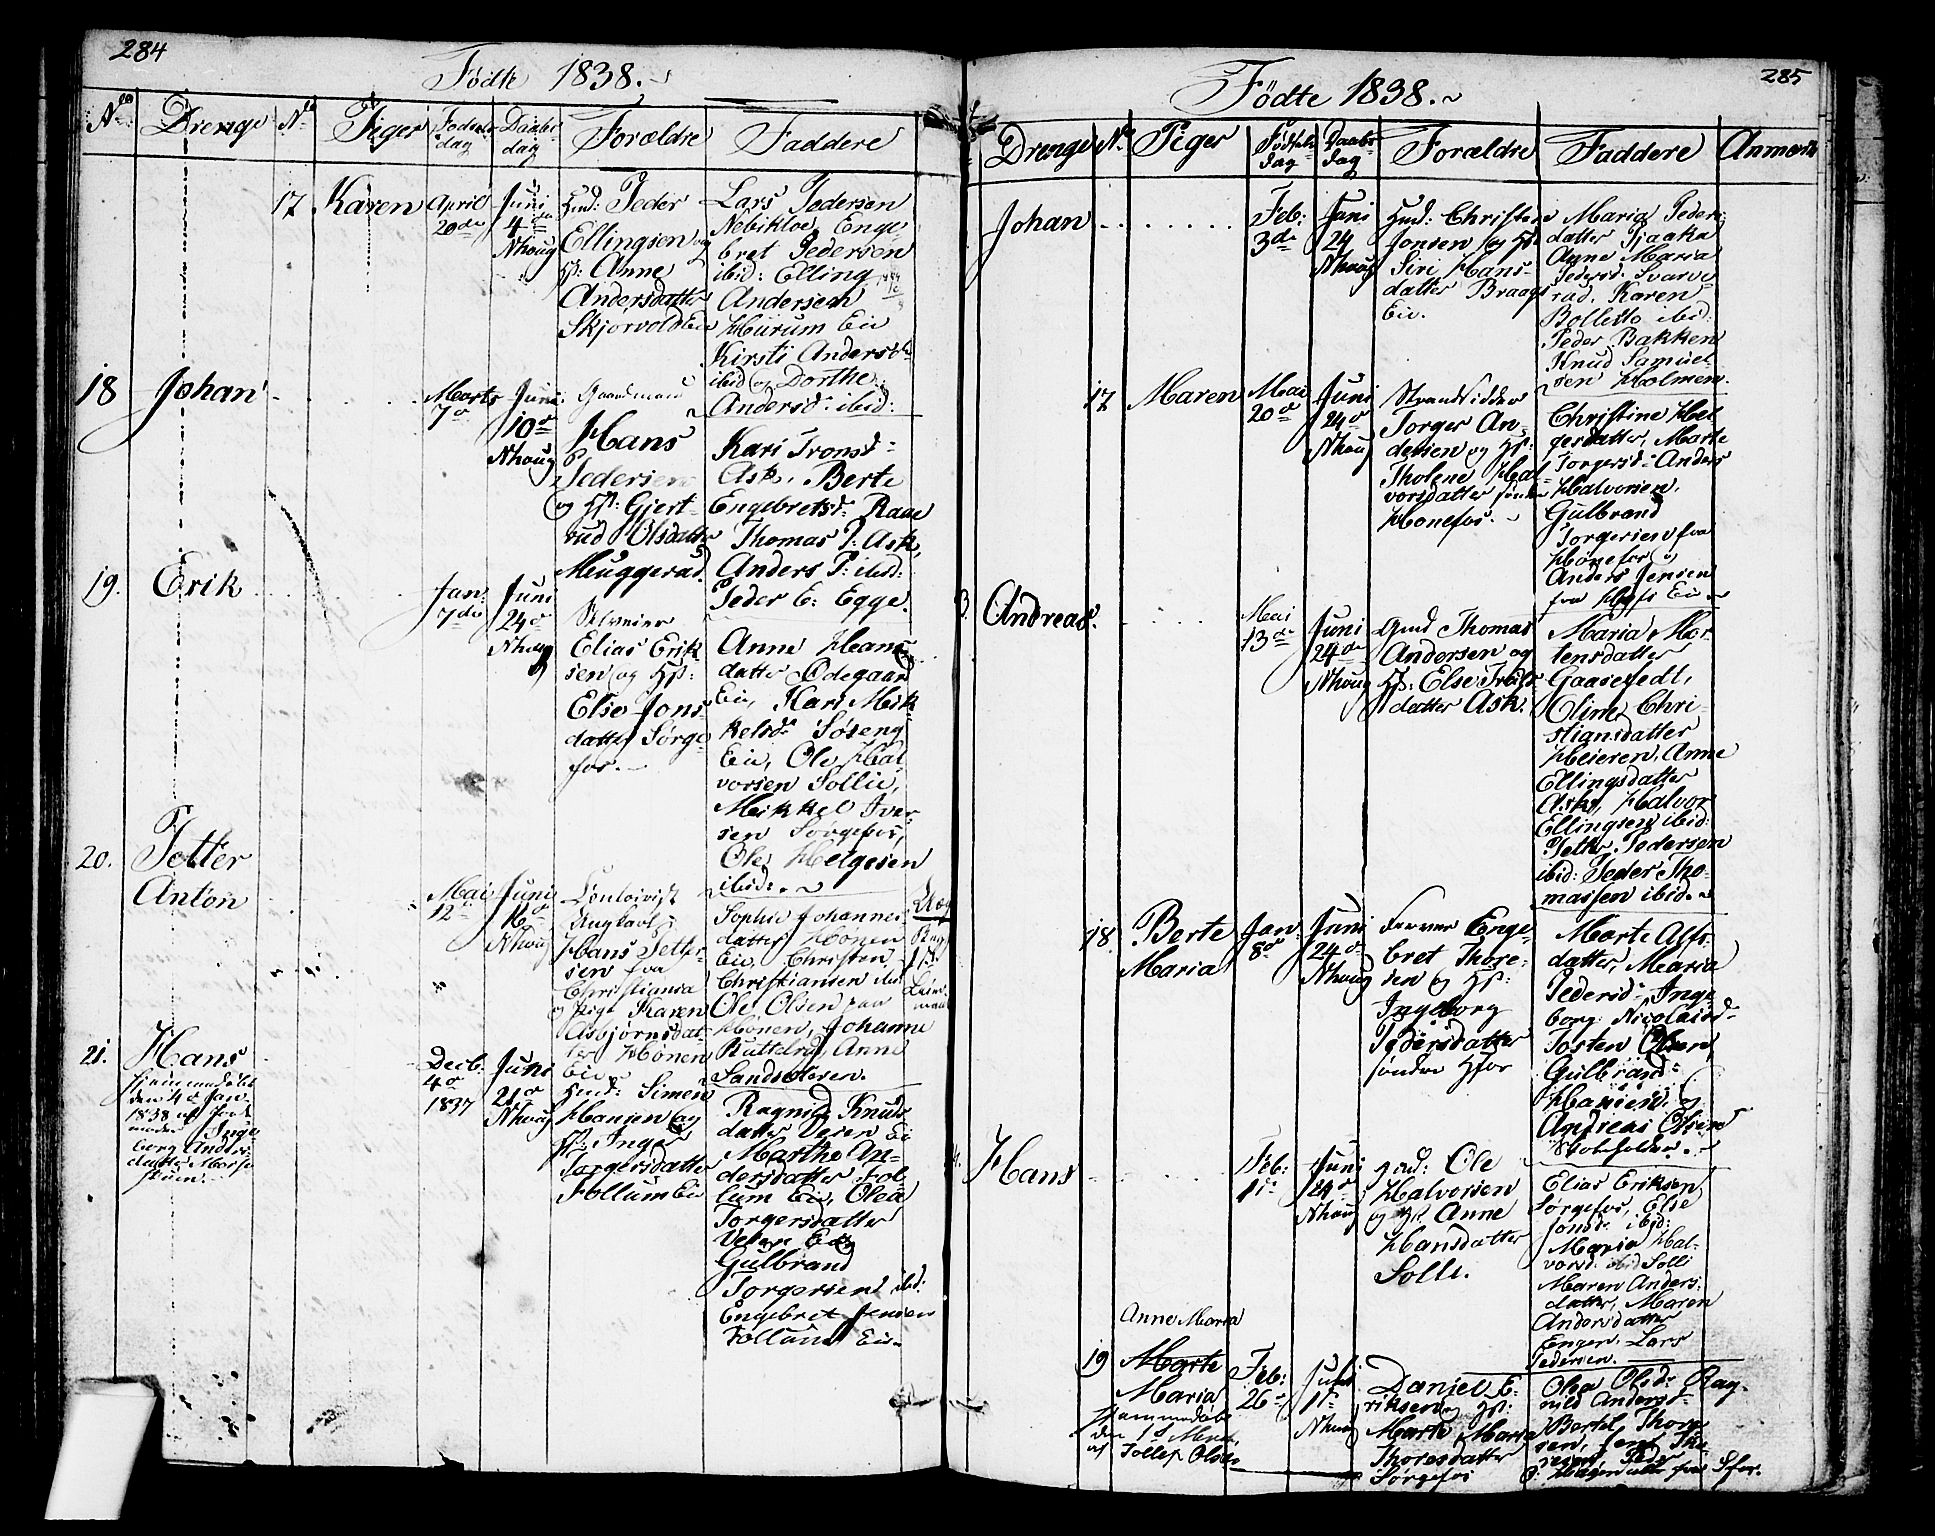 284
Födte 1838.
No Drenge No Piger Fødsels dag Daabs dag Forældre Faddere
17 Karen April 20de Juni 4de Nhoug
Huusmd: Peder
Ellingsen og
H: Anne
Andersdatter
Skjørvold Eie
Lars Pedersen
Nebikloe, Enge
bret Pedersen
ibid: Elling
Andersen
Hurum Eie
Kirsti Andersd:
ibid og Dorthe
Andersd: ibid:
18 Johan Marts 7de Juni 10de Nhoug
Gaardmand
Hans
Pedersen
og Hst: Gjert-
rud Olsdatter
Muggerud.
Kari Tronsd:
Ask, Berte
Engebretsd: Raae
Thomas P: Ask,
Anders P: ibid:
Peder E: Egge.
19. Erik Jan: 7de Juni 24de Nhoug
Selveier
Elias Erik-
sen og Hst:
Else Jons-
datter Sørge-
fos.
Anne Hans-
datter Ødegaard
Eie, Kari Mik-
kelsd: Søseng
Eie, Ole Hal-
vorsen Sollie,
Mikkel Iver-
sen Sørgefos,
Ole Helgesen
ibid:
20. Petter
Anton Mai 12te Juni 16de Nhoug
Ungkarl
Hans Petter-
sen fra
Christiania
og Pige Karen
Asbjørnsdat-
ter Hønen
Eie
Sophie Johannes-
datter Hønen
Eie, Christen
Christiansen ibid
Ole Olsen paa
Hønen, Johanne
Kuttelrud, Anne
Sandsoteren.
21. Hans
hjemmedøbt
den 4de Jan:
1838 af Jord-
moder Inge-
borg Anders-
datter
Decb: 4de 1837 Juni 21de Nhoug
Huusmd: Simen
Hansen og
Hst: Inger
Torgersdatter
Follum Eie
Ragnild Knuds-
datter Veien Ei
Marthe An-
dersdatter Fol-
lum Eie, Olea
Torgersdatter
Veien Eie
Gulbrand
Torgersen ibd:
Engebret Jensen
Follum Eie
285
Födte 1838.
Drenge No Piger Födsels dag Daabs dag Forældre Faddere Anmærk
Johan Feb: 3de Juni 24 Nhoug
Huusmd: Christen
Jonsen og Hst:
Siri Hans-
datter Braags
Eie.
Maria Peders
datter Tjaaka
Anne Maria
Pedersd: Svarve
rud, Karen
Bolletto ibid:
Peder Bakken
Knud Samuel-
sen Holmen.
17 Maren Mai 20de Juni 24de Nhoug
Strandsidder
Torger An-
dersen og Hst:
Tholene Hal-
vorsdatter søndre
Hønefos.
Christine Hel-
gesdatter, Marte
Torgersd: Anders
Halvorsen,
Gulbrand
Torgersen fra
Hønefos og
Anders Jensen
fra Eie
3. Andreas. Mai 13de Juni 24de Nhoug
Gmd Thomas
Andersen og
Hst: Else Trols-
datter Ask.
Maria Mor-
tensdatter
Gaasefedt,
Eline Chri-
stiansdatter
Heieren, Anne
Ellingsdatter
Ask, Halvor
Ellingsen ibid:
Petter Pedersen
ibid: Peder Tho-
massen ibid.
18. Berte
Maria Jan: 8de Juni 24de Nhoug
Farver Enge-
bret Thore-
sen og Hst:
Ingeborg
Pedersdatter
søndre Hfos
Marte Alfs-
datter, Maria
Pedersd: Inge-
borg Nicolaisd:
Tosten Olsen,
Gulbrand
Hansen og
Andreas Olsen
4. Hans Feb: 11te Juni 24de Nhoug
Gmd: Ole
Halvorsen
og Hst Anne
Hansdatter
Solli.
Elias Eriksen
Sørgefos, Else
Jonsd: ibid:
Maria Hal-
vorsd: ibid Solli
Maren Anders-
datter, Maren
Andersdatter
Enger, Lars
Pedersen.
Anne Maria
19 Marte
Maria
hjemmedøbt
af
Tollef Olsen
Feb: 26de Juli 1ste Nhoug
Daniel E-
riksen og Hst:
Marte Maria
Thoresdatter
Sørgefos
Olea Olsd: Rag-
nild Andersd:
Bertel Thore-
sen,